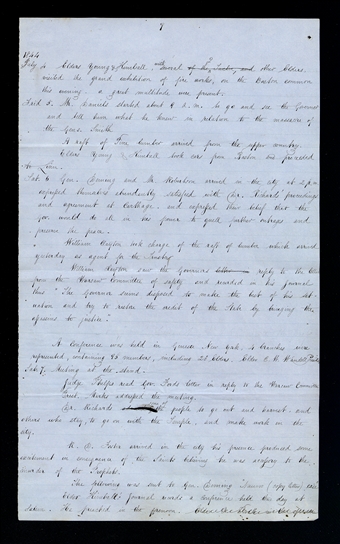 7
1844
July 4 Elders Young & Kimball with several of the Twelve, and other Elders,
visited the grand exhibition of fire works, on the Boston common
this evening. a great multitude were present.
5. Mr. Daniels started about 9 a.m. to go and see the Governor
and tell him what he knew in relation to the massacre of
the Gens. Smith
A raft of Pine lumber arrived from the upper country.
Elders Young & Kimball took cars from Boston and proceeded
to
6 Gen. Deming and Mr. arrived in the city at 2 p.m.
expressed themselves abundantly satisfied with Dr. Richards proceedings
and agreement at Carthage. and expressed their belief that the
Gov. would do all in his power to quell further outrage and
preserve the peace.
William Clayton took charge of the raft of lumber which arrived
yesterday as agent for the Trustee
William Clayton saw the Governors letter reply to the letter
from the Warsaw Committee of safety and recorded in his journal
this "The Governor seems disposed to make the best of his
and try to restore the credit of the State by bringing the
to justice."
A Conference was held in Genesee New York. 4 branches were
represented, containing 86 members, including 22 Elders. Elder
7. Meeting at the stand.
Judge Phelps read Gov. Fords letter in reply to the Warsaw Committee
addressed the meeting.
Dr. Richards people to go out and harvest and
others who stay, to go on with the Temple, and make work in the
city.
arrived in the city his presence produced some
excitement in consequence of the Saints believing he was accessory to the
murder of the Prophets.
The following was sent to Gen. Deming (copy letter)
Elder Kimball's Journal records a Conference held this day at
Salem. He preached in the forenoon.